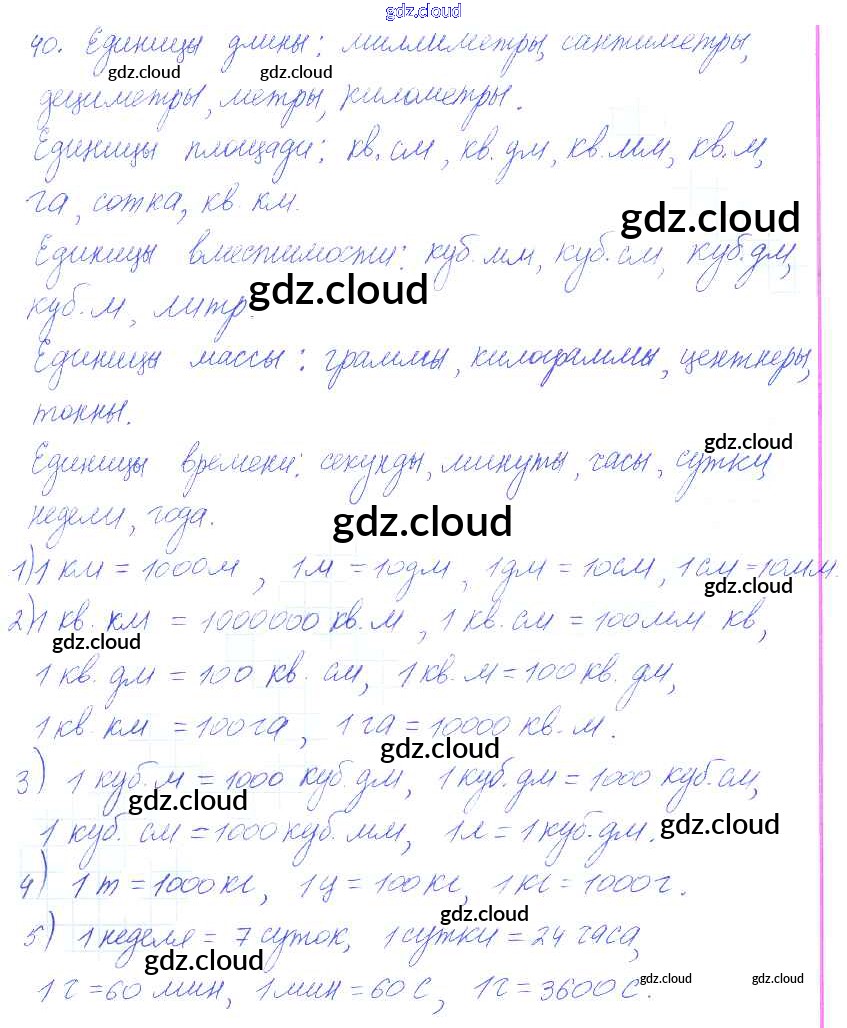 gdz.cloud
40. Единицы длины: миллиметры, сантиметры,
gdz.cloud gdz.cloud
дециметры, метры, километры.
Единицы площади: кв. см, кв. дм, кв. мм, кв. м,
га, сотка, кв. км.
gdz.cloud
Единицы вместимости: куб. мм, куб. см, куб. дм,
gdz.cloud
куб. м, литр.
Единицы массы: граммы, килограммы, центнеры,
тонны.
gdz.cloud
Единицы времени: секунды, минуты, часы, сутки,
недели, года.
gdz.cloud
1) 1 км = 1000м, 1м = 10дм, 1дм = 10см, 1см = 10мм.
gdz.cloud
2) 1 кв. км = 1000000 кв. м, 1 кв. см = 100мм кв,
gdz.cloud
1 кв. дм = 100 кв. см, 1 кв. м = 100 кв. дм,
1 кв. км = 100га, 1 га = 10000 кв. м.
gdz.cloud
3) 1 куб. м = 1000 куб. дм, 1 куб. дм = 1000 куб. см,
gdz.cloud
1 куб. см = 1000 куб. мм, 1л = 1 куб. дм.
gdz.cloud
4) 1 т = 1000кг, 1 ц = 100кг, 1кг = 1000г.
gdz.cloud
5) 1 неделя = 7 суток, 1 сутки = 24 часа,
gdz.cloud
1 ч = 60 мин, 1 мин = 60 с, 1ч = 3600 с.
gdz.cloud gdz.cloud